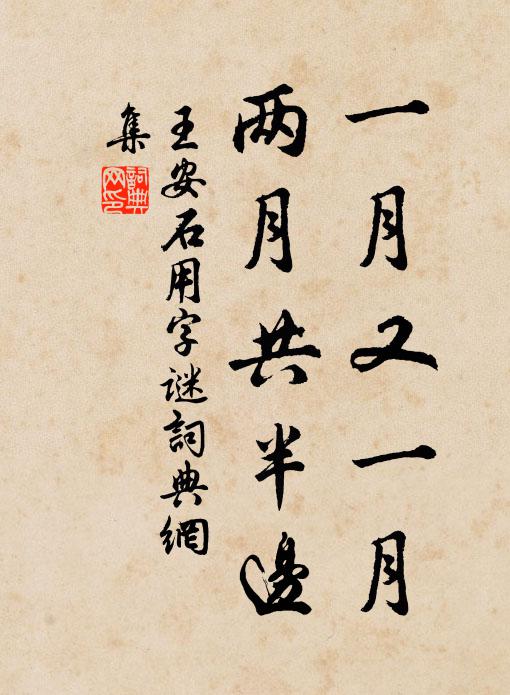 一月又一月
两月共半邊
王安石用字謎詞典網
集
詞典
网印